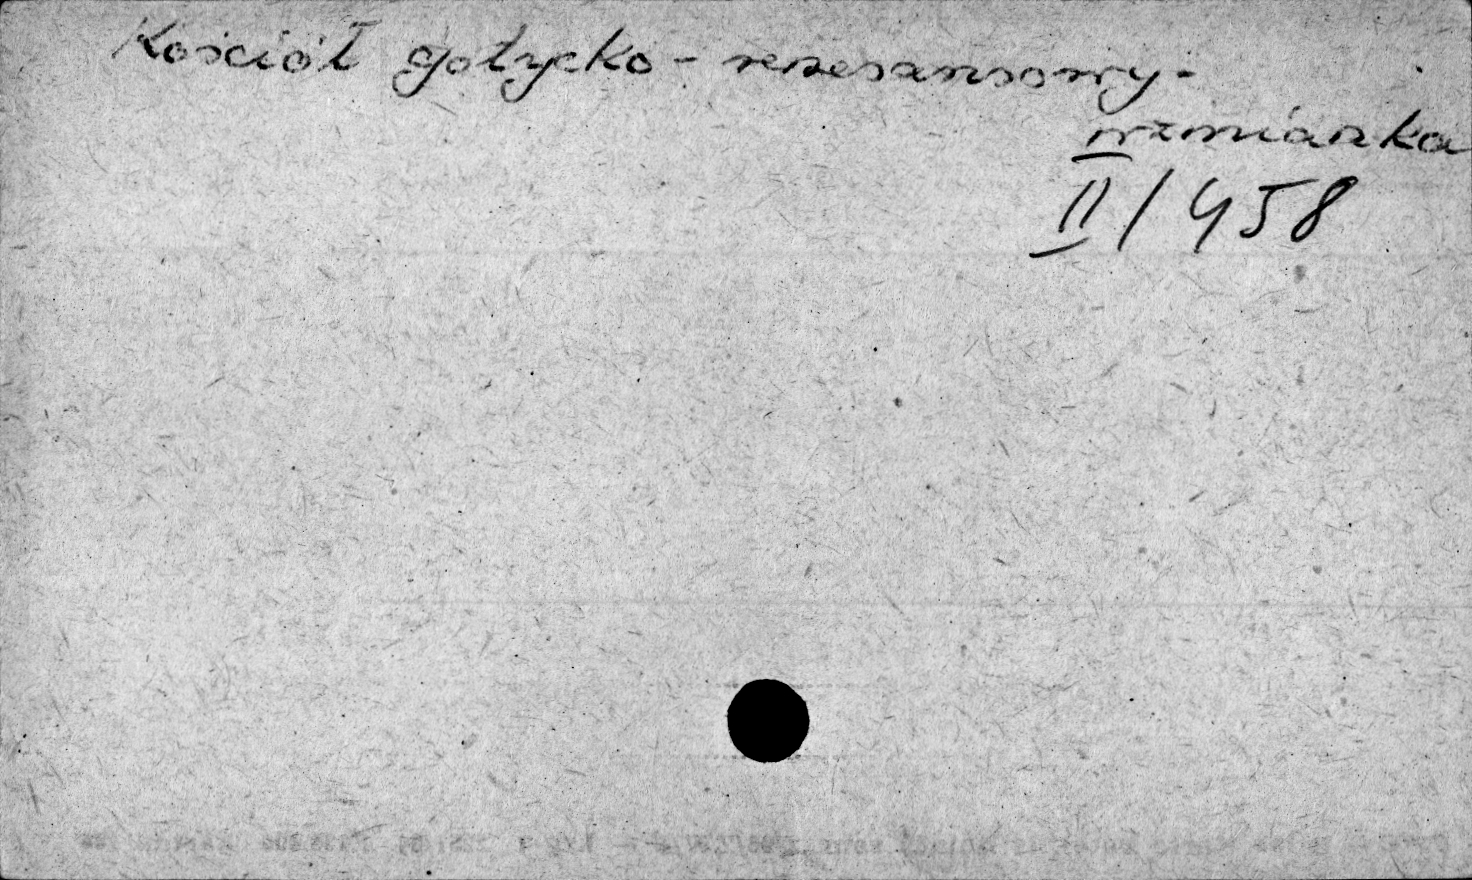 Kościół gotycko - renesansowy -
wzmianka
II / 458